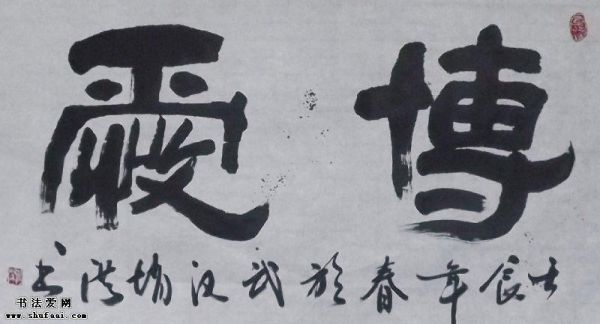 博愛
壬辰年春於武汉洪书
书法爱网
www.shufaai.com